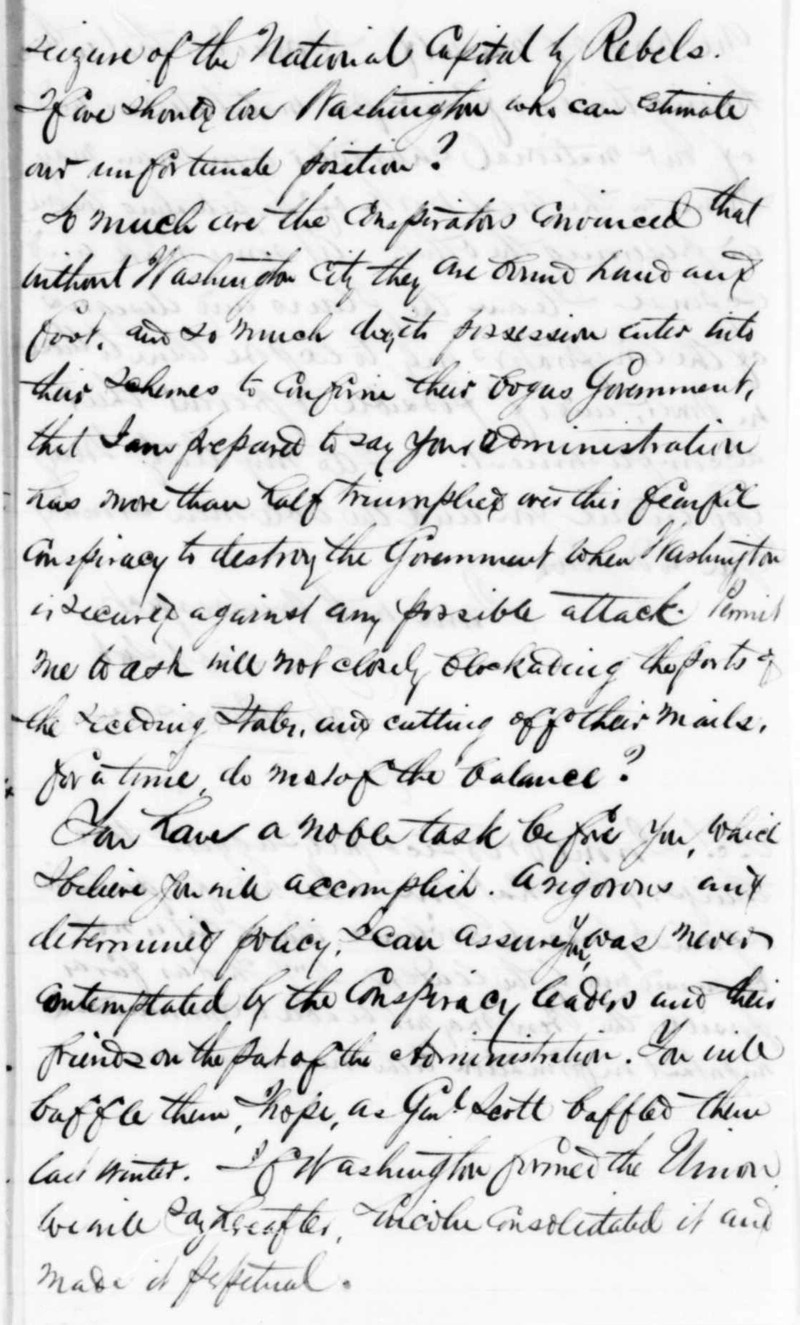 seizure of the National Capital by Rebels.
If we should lose Washington who can estimate
our unfortunate position?
So much are the Conspirators convinced that
without Washington City they are bound hand and
foot, and so much does its possession enter into
their schemes to confirm their bogus Government,
that I am prepared to say your administration
has more than half triumphed over this fearful
conspiracy to destroy the Government when Washington
is secured against any possible attack. Permit
me to ask will not closely blockading the ports of
the seceding States, and cutting off their mails,
for a time, do most of the balance?
You have a noble task before you, which
I believe you will accomplish. A vigorous and
determined policy, I can assure you, was never
contemplated by the Conspiracy leaders and their
friends on the part of the administration. You will
baffle them, I hope, as Genl Scott baffled them
last winter. If Washington formed the Union
we will say hereafter, Lincoln consolidated it and
made it perpetual.